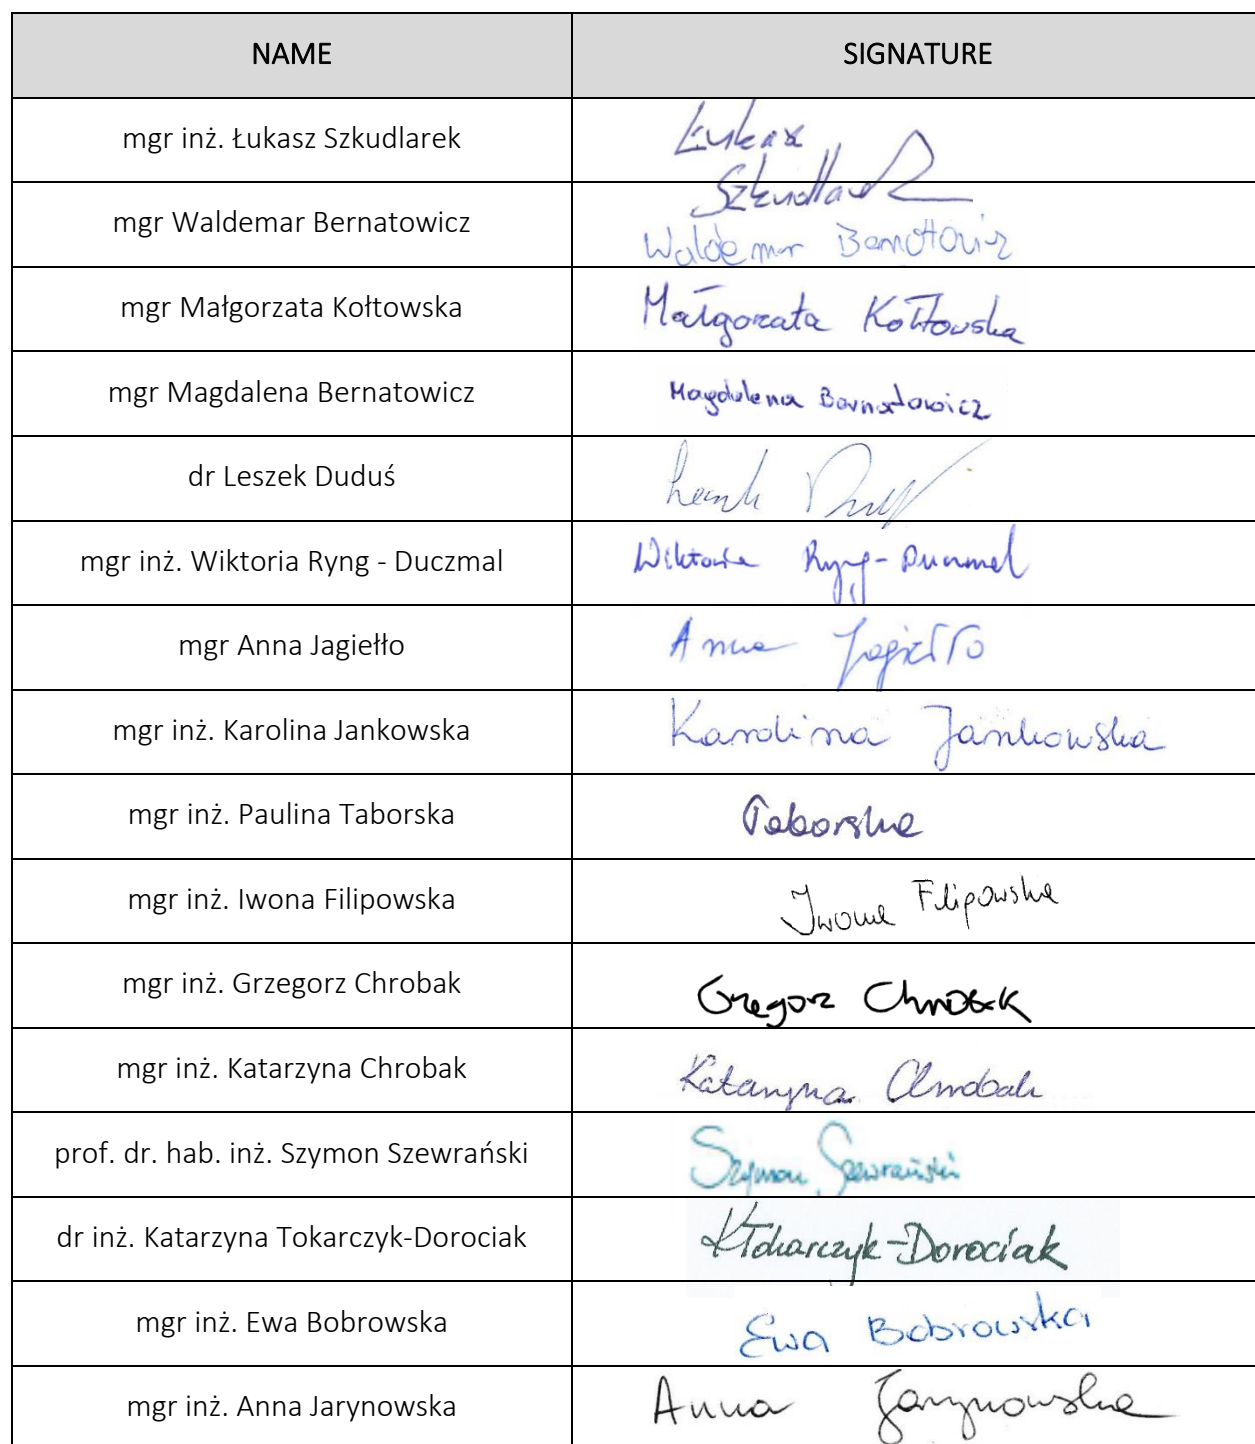 NAME SIGNATURE
mgr inż. Łukasz Szkudlarek Łukasz
Szkudlarek
mgr Waldemar Bernatowicz Waldemar Bernatowicz
mgr Małgorzata Kołtowska Małgorzata Kołtowska
mgr Magdalena Bernatowicz Magdalena Bernatowicz
dr Leszek Duduś Leszek
mgr inż. Wiktoria Ryng - Duczmal Wiktoria Ryng-Duczmal
mgr Anna Jagiełło Anna Jagiełło
mgr inż. Karolina Jankowska Karolina Jankowska
mgr inż. Paulina Taborska Taborska
mgr inż. Iwona Filipowska Iwona Filipowska
mgr inż. Grzegorz Chrobak Grzegorz Chrobak
mgr inż. Katarzyna Chrobak Katarzyna Chrobak
prof. dr. hab. inż. Szymon Szewrański Szymon Szewrański
dr inż. Katarzyna Tokarczyk-Dorociak KTokarczyk-Dorociak
mgr inż. Ewa Bobrowska Ewa Bobrowska
mgr inż. Anna Jarynowska Anna Jarynowska